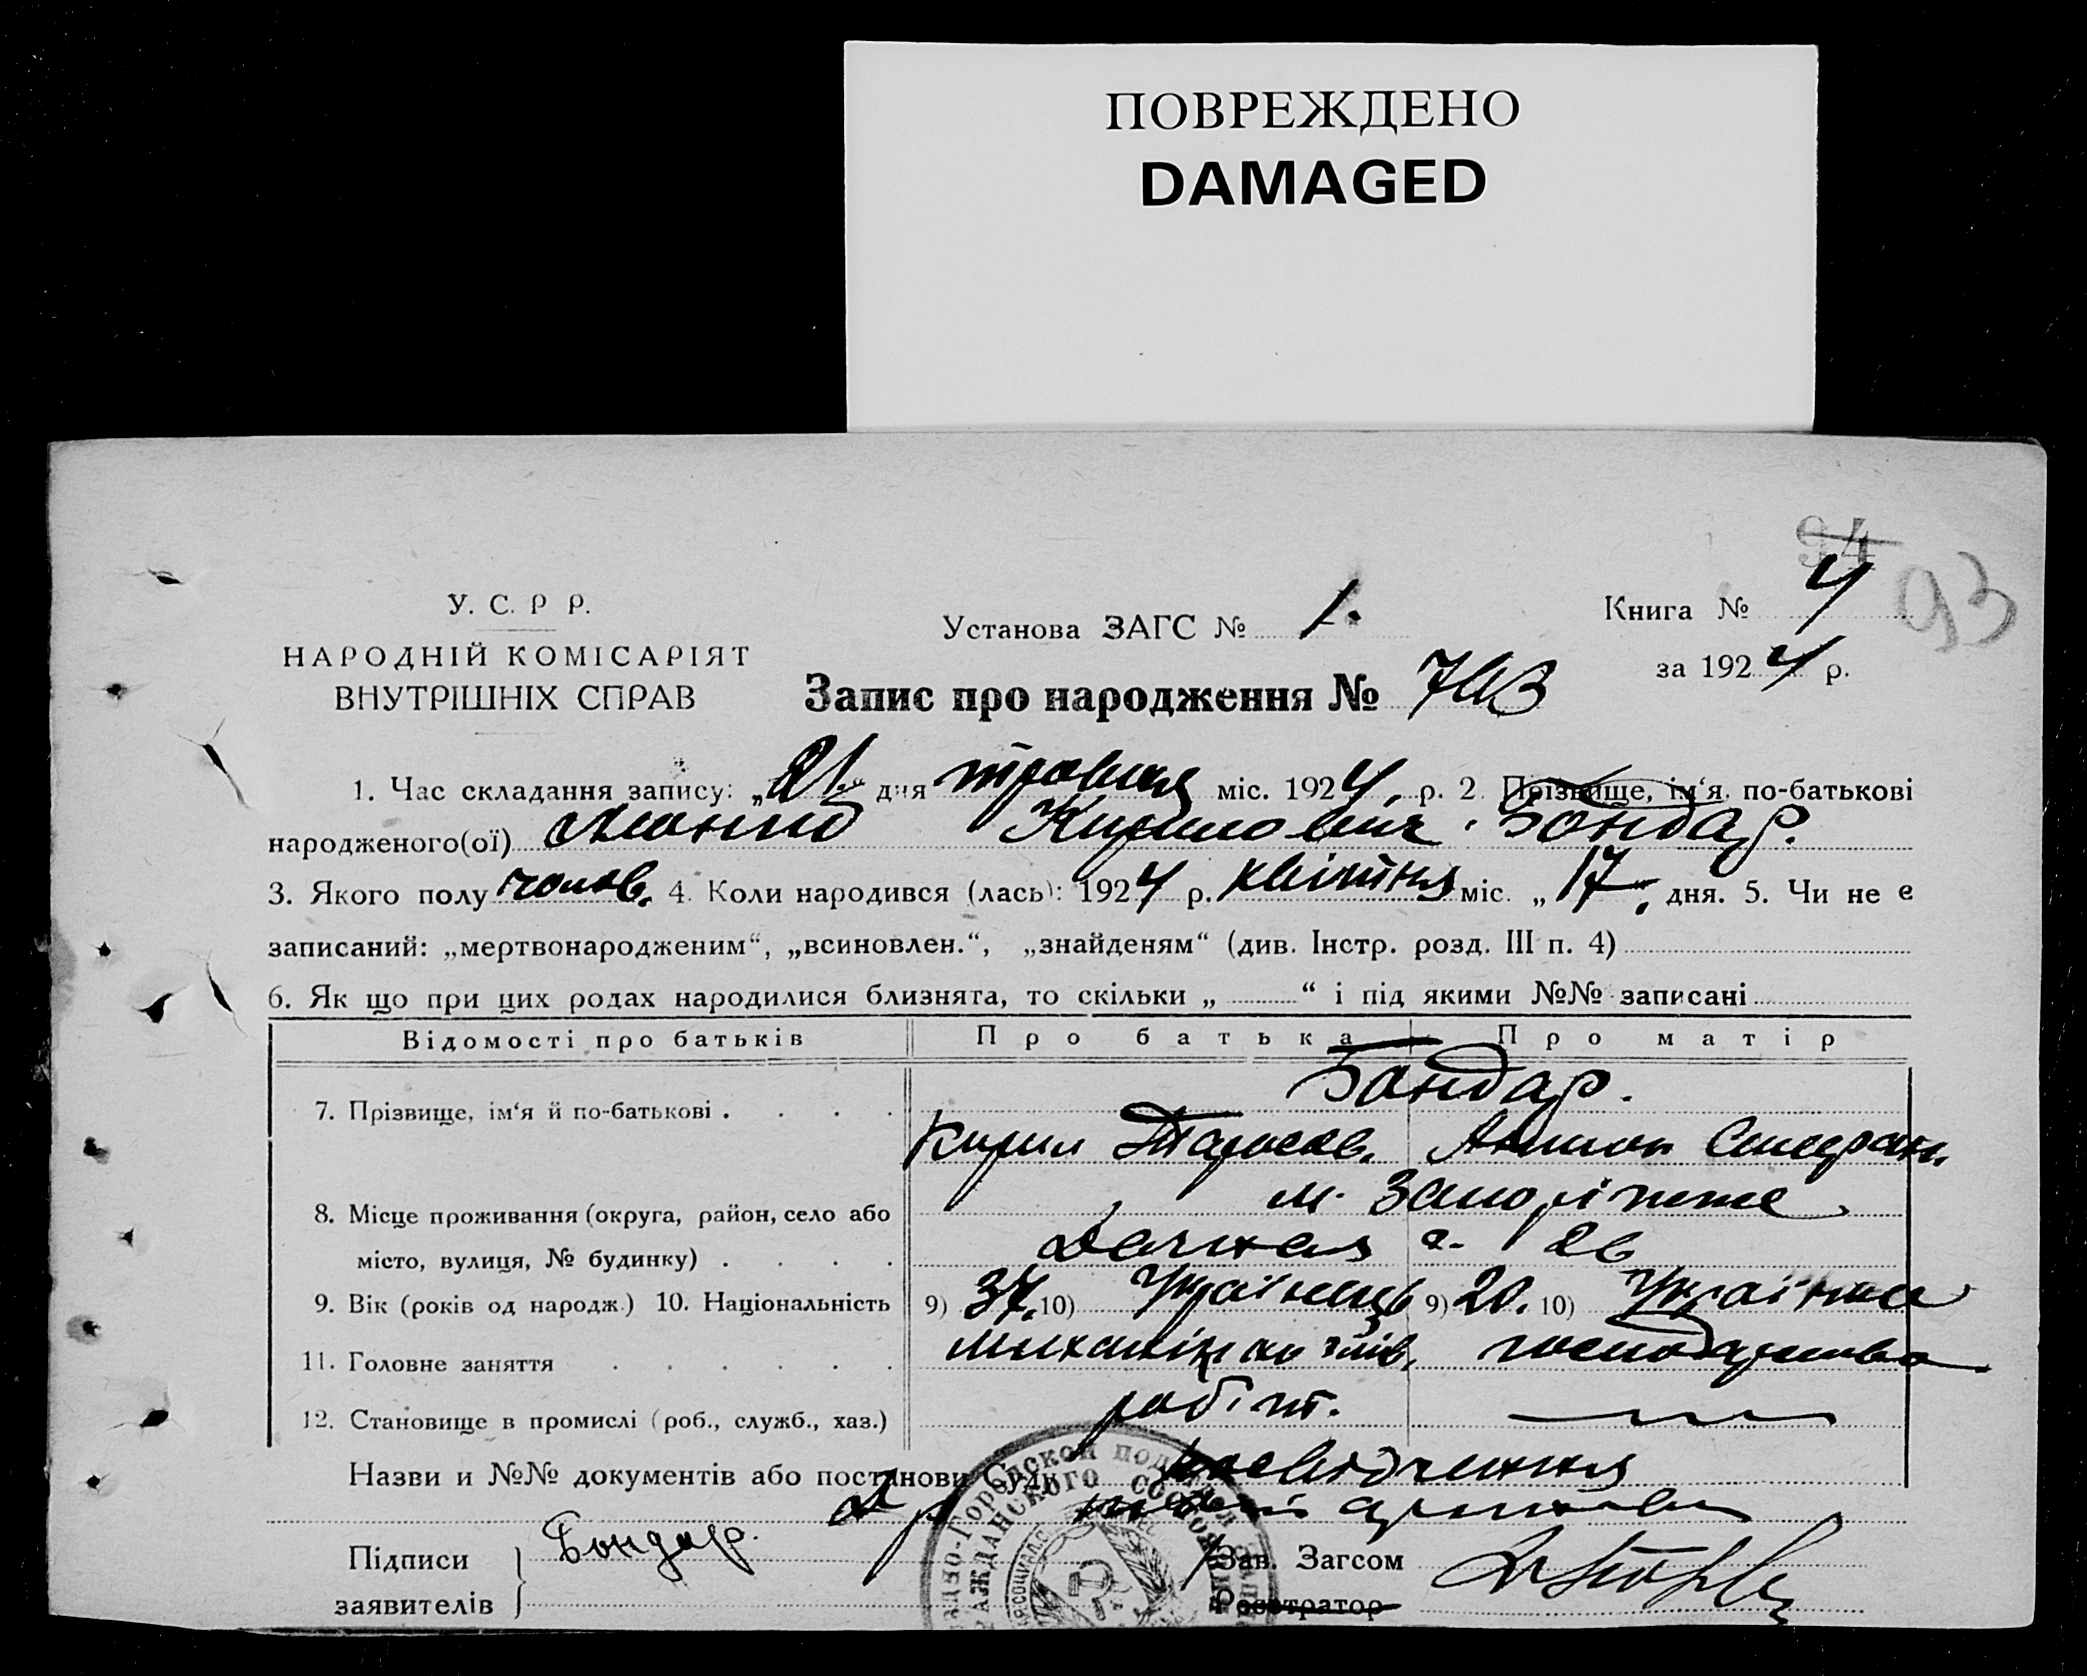 ПОВРЕЖДЕНО
DAMAGED
94
93
У. С. Р Р.
НАРОДНІЙ КОМІСАРІЯТ
ВНУТРІШНІХ СПРАВ
Установа ЗАГС № 1.
Книга № 4
за 1924 р.
Запис про народження №
1. Час складання запису: „21.“ дня травня міс. 1924 р. 2. Прізвище, ім‘я, по-батькові
народженого(ої) Кирилович Бондар.
3. Якого полу чолов. 4. Коли народився (лась): 1924 р. квітня міс. „17“ дня. 5. Чи не є
записаний: „мертвонародженим“, „всиновлен.“, „знайденям“ (див. Інстр. розд. III п. 4)
6. Як що при цих родах народилися близнята, то скільки „ “ і під якими №№ записані
Відомості про батьків Про батька Про матір
Бондар.
7. Прізвище, ім‘я й по-батькові . . . .
Кирил Тарасов.
8. Місце проживання (округа, район, село або м. Запоріжже
місто, вулиця, № будинку) . . . . Дачная 26
9. Вік (років од народж.) 10. Національність 9) 37. 10) Українець 9) 20. 10) Українка
11. Головне заняття . . . . . . господарство
12. Становище в промислі (роб., служб., хаз.) робіт.
Назви и №№ документів або постанови Суду посвідчення
Підписи Бондар. Зав. Загсом
заявителів Реєстратор